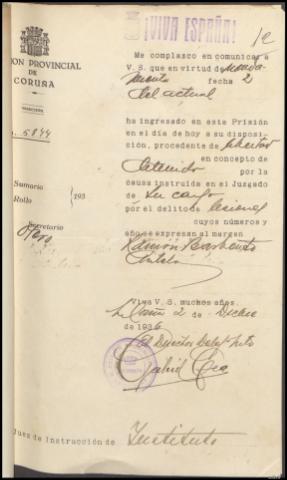 ¡VIVA ESPAÑA!
1c
ON PROVINCIAL
DE
CORUÑA
Me complazco en comunicar a
V. S. que en virtud de manda-
miento fecha 2
del actual
5844
ha ingresado en este Prisión
en el día de hoy a su disposi-
ción, procedente de libertad
en concepto de
detenido por la
causa instruida en el Juzgado
de su cargo
por el delito de lesiones
cuyos números y
año se expresan al margen
Sumario
Rollo
193
Secretario
Ramón Barbeito
Viva V. S. muchos años.
2 de Dicbre
de 1936
El Director
Gabriel
Juez de Instrucción de Instituto